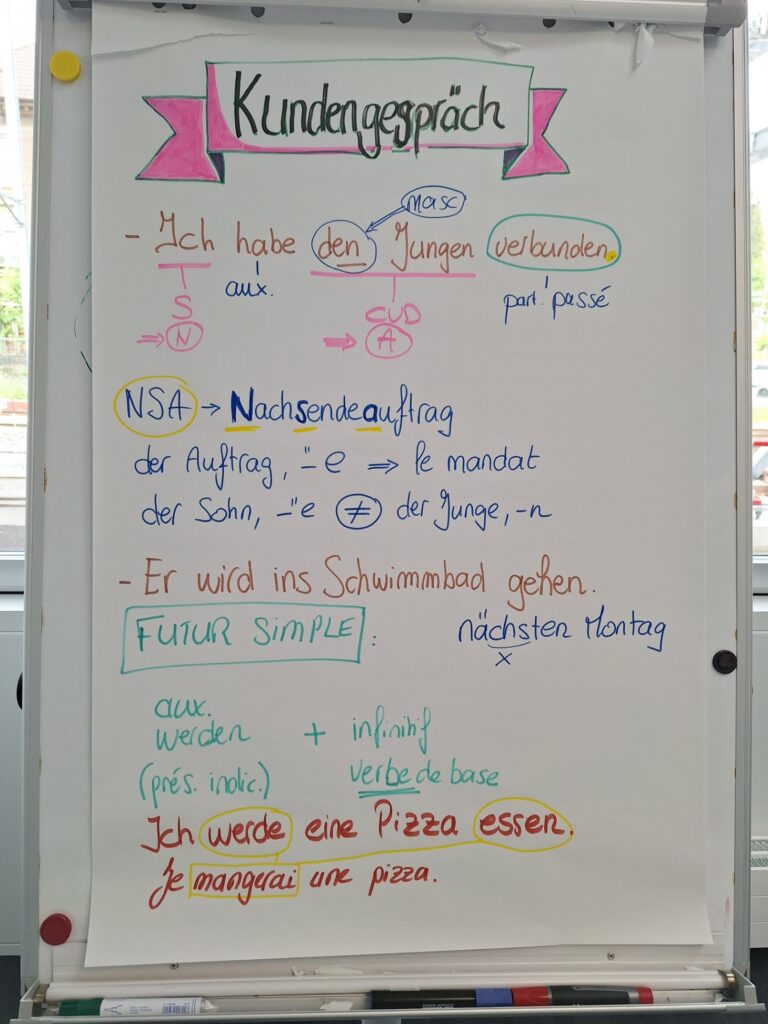 Kundengespräch
masc
- Ich habe den Jungen verbunden.
aux.
part. passé
S
CUD
⇒ N
⇒ A
NSA → Nachsendeauftrag
der Auftrag, -̈e ⇒ le mandat
der Sohn, -̈e ≠ der Junge, -n
- Er wird ins Schwimmbad gehen.
FUTUR SIMPLE :
nächsten Montag
x
aux.
werden + infinitif
(prés. indic.) verbe de base
Ich werde eine Pizza essen.
Je mangerai une pizza.